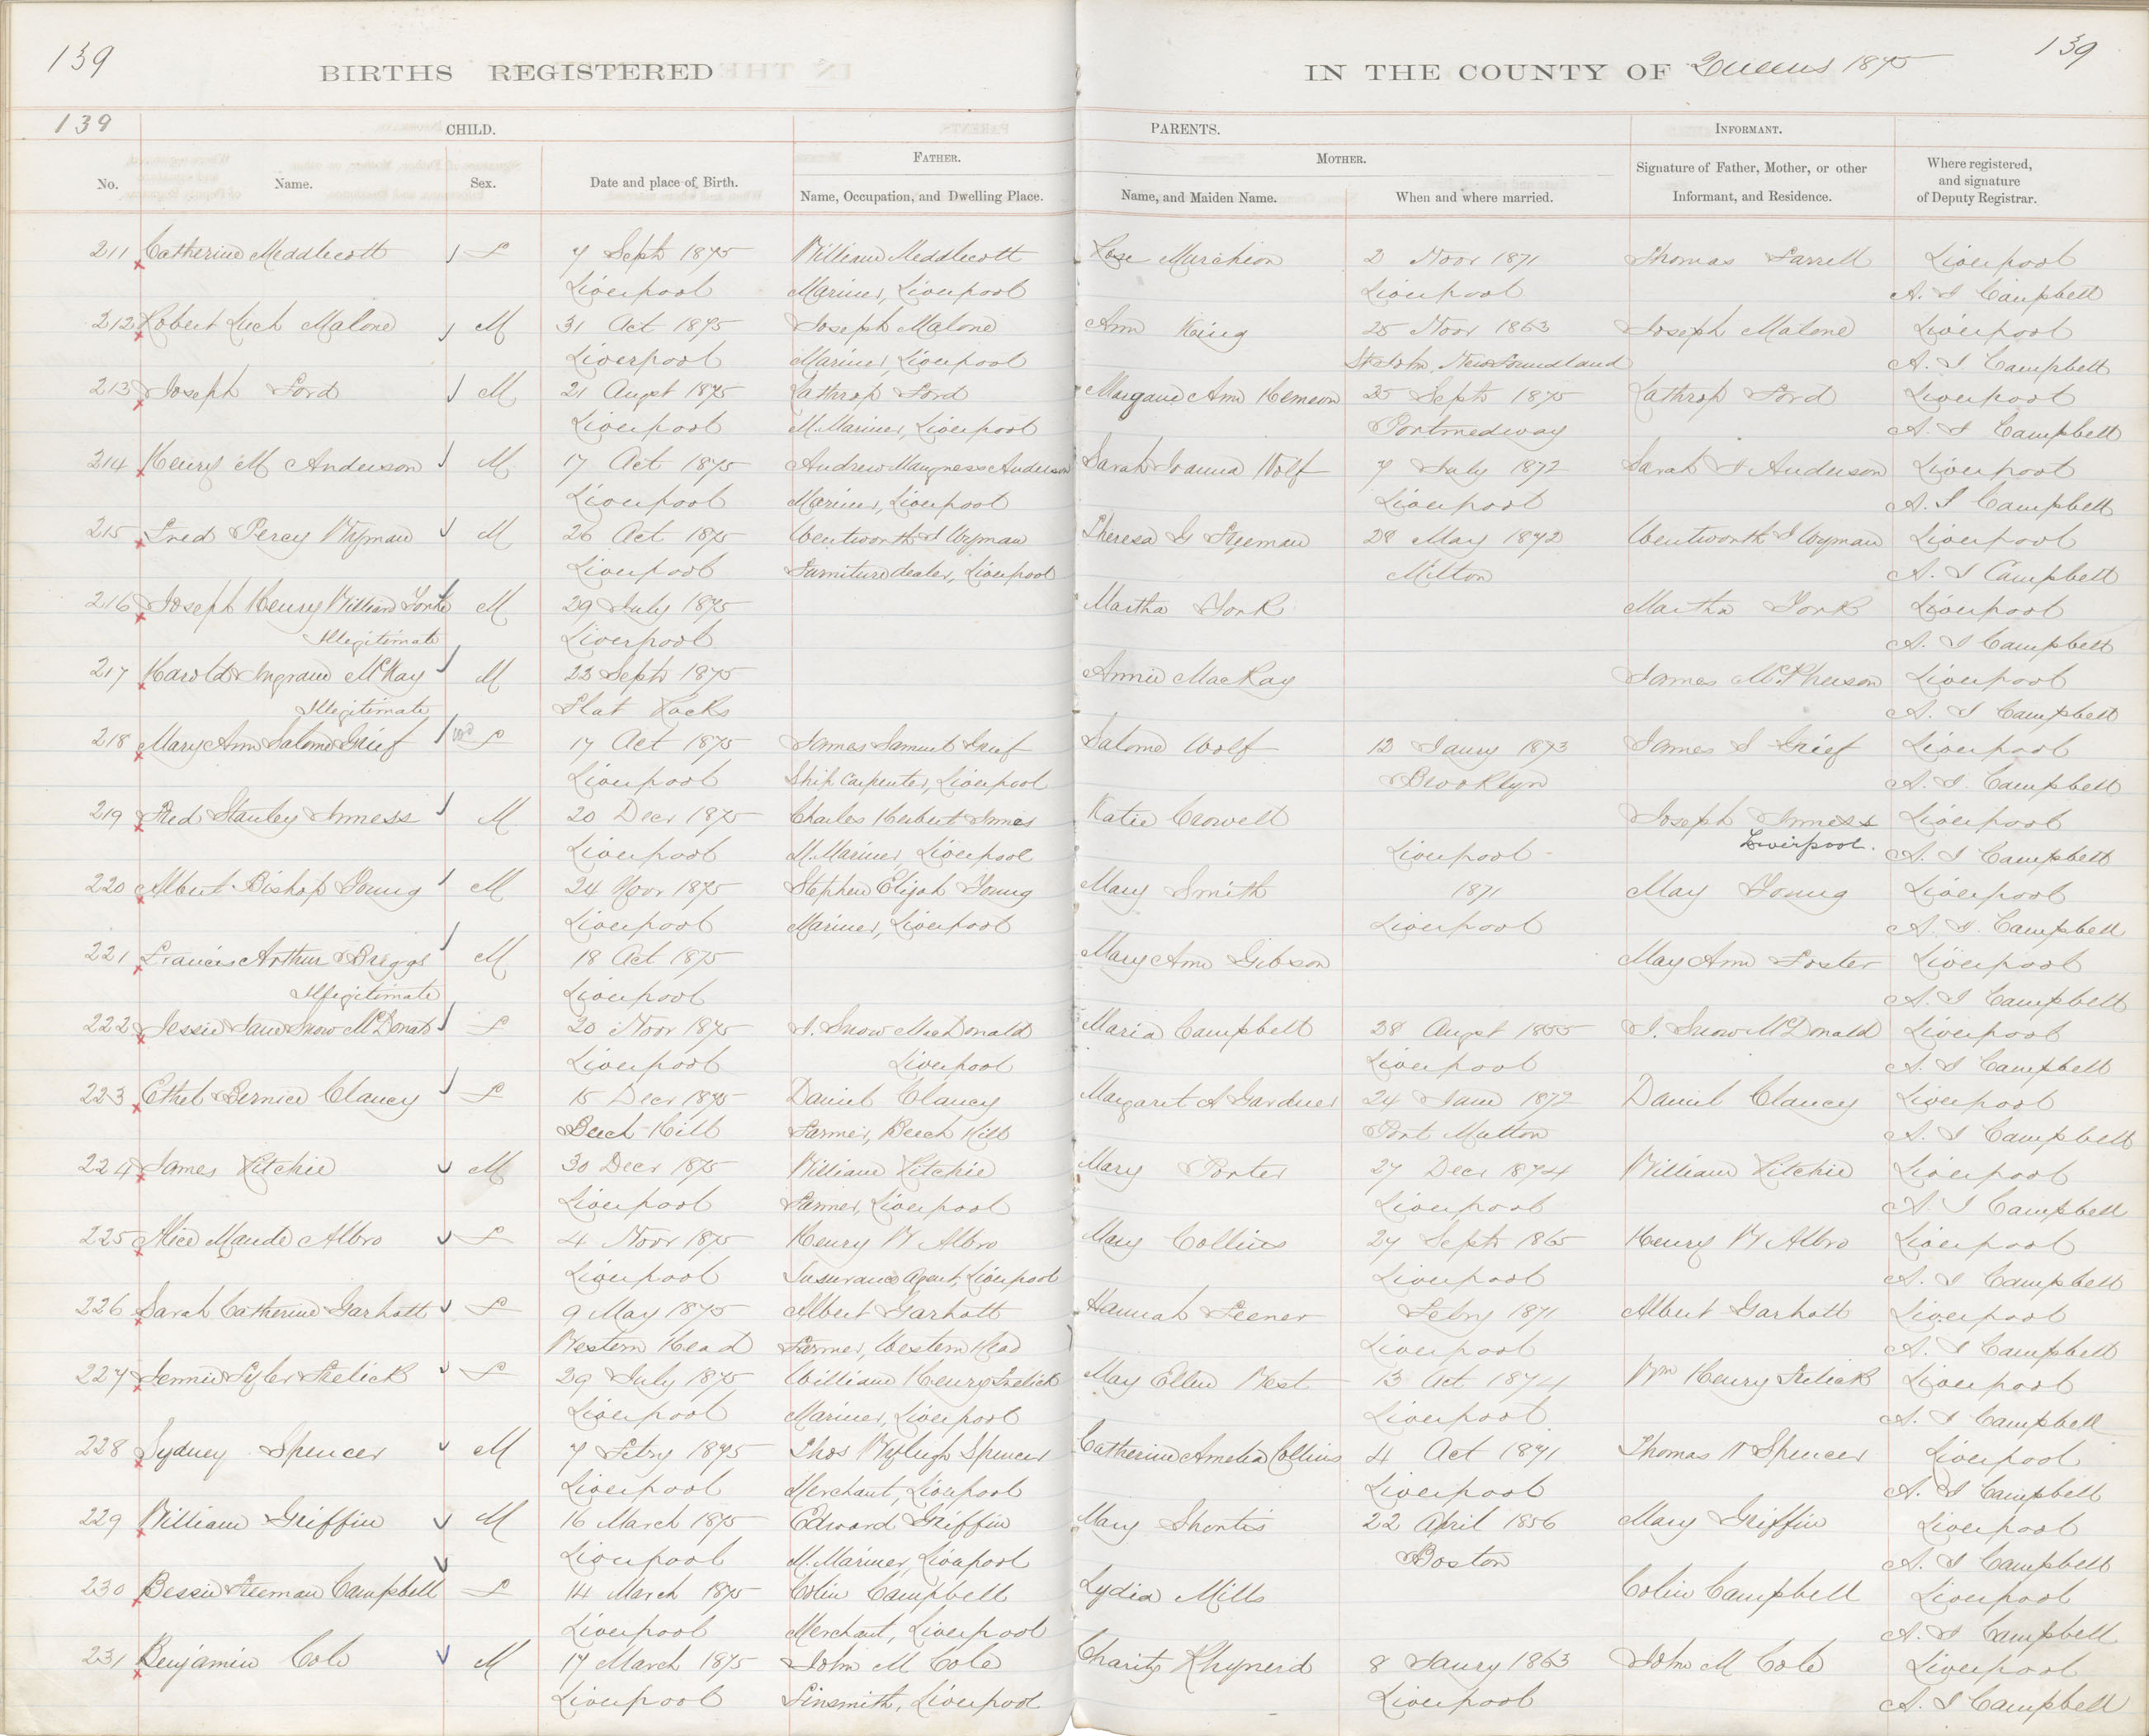 139
BIRTHS REGISTERED
IN THE COUNTY OF Queens 1875
139
139
CHILD.
PARENTS.
INFORMANT.
FATHER.
MOTHER.
No.
Name.
Sex.
Date and place of Birth.
Name, Occupation, and Dwelling Place.
Name, and Maiden Name.
When and where married.
Signature of Father, Mother, or other
Informant, and Residence.
Where registered,
and signature
of Deputy Registrar.
211 Catherine Meddlecott F 7 Sept 1875 William Meddlecott Rose Murchion 2 Novr 1871 Thomas Farrell Liverpool
Liverpool Mariner, Liverpool Liverpool A. J Campbell
212 Robert Luch Malone M 31 Oct 1875 Joseph Malone Ann King 25 Novr 1863 Joseph Malone Liverpool
Liverpool Mariner, Liverpool St John Newfoundland A. J. Campbell
213 Joseph Ford M 21 Augst 1875 Lathrop Ford Margaret Ann Kemeon 25 Sept 1875 Lathrop Ford Liverpool
Liverpool M. Mariner, Liverpool Portmedway A. J Campbell
214 Henry M Anderson M 17 Oct 1875 Andrew Maugness Anderson Sarah Joanna Wolf 7 July 1872 Sarah J Anderson Liverpool
Liverpool Mariner, Liverpool Liverpool A. J Campbell
215 Fred Percy Wyman M 26 Oct 1875 Wentworth J Wyman Theresa G Freeman 28 May 1872 Wentworth J Wyman Liverpool
Liverpool Furniture dealer, Liverpool Milton A. J Campbell
216 Joseph Henry William York M 29 July 1875 Martha York Martha York Liverpool
Illegitimate Liverpool A. J Campbell
217 Harold Ingram McKay M 23 Sept 1875 Annie MacKay James McPherson Liverpool
Illegitimate Flat Rocks A. J Campbell
218 Mary Ann Salome Grief F 17 Oct 1875 James Samuel Grief Salome Wolf 12 Jany 1873 James S Grief Liverpool
Liverpool Ship Carpenter, Liverpool Brooklyn A. J. Campbell
219 Fred Stanley Inness M 20 Decr 1875 Charles Herbert Innes Katie Crowell Joseph Inness Liverpool
Liverpool M. Mariner, Liverpool Liverpool Liverpool. A. J Campbell
220 Albert Bishop Young M 24 Novr 1875 Stephen Elijah Young Mary Smith 1871 May Young Liverpool
Liverpool Mariner, Liverpool Liverpool A. J. Campbell
221 Francis Arthur Briggs M 18 Oct 1875 Mary Ann Gibson May Ann Foster Liverpool
Illegitimate Liverpool A. J Campbell
222 Jessie Jane Snow McDonald F 20 Novr 1875 J. Snow MacDonald Maria Campbell 28 Augst 1855 J. Snow McDonald Liverpool
Liverpool Liverpool Liverpool A. J Campbell
223 Ethel Bernice Clancy F 15 Decr 1875 Daniel Clancy Margaret A Gardner 24 June 1872 Daniel Clancy Liverpool
Beech Hill Farmer, Beech Hill Port Mutton A. J Campbell
224 James Ritchie M 30 Decr 1875 William Ritchie Mary Porter 27 Decr 1874 William Ritchie Liverpool
Liverpool Farmer, Liverpool Liverpool A. J Campbell
225 Alice Maude Albro F 4 Novr 1875 Henry W Albro Mary Collins 27 Sept 1865 Henry W Albro Liverpool
Liverpool Insurance Agent, Liverpool Liverpool A. J Campbell
226 Sarah Catherine Garhatt F 9 May 1875 Albert Garhatt Hannah Feener Febry 1871 Albert Garhatt Liverpool
Western Head Farmer, Western Head Liverpool A. J Campbell
227 Jennie Tyler Frelick F 29 July 1875 William Henry Frelick May Ellen West 13 Oct 1874 Wm Henry Frelick Liverpool
Liverpool Mariner, Liverpool Liverpool A. J Campbell
228 Sydney Spencer M 7 Febry 1875 Thos Spencer Catherine Amelia Collins 4 Oct 1871 Thomas W Spencer Liverpool
Liverpool Merchant, Liverpool Liverpool A. J Campbell
229 William Griffin M 16 March 1875 Edward Griffin Mary Shortis 22 April 1856 Mary Griffin Liverpool
Liverpool M. Mariner, Liverpool Boston A. J Campbell
230 Bessie Freeman Campbell F 14 March 1875 Colin Campbell Lydia Mills Colin Campbell Liverpool
Liverpool Merchant, Liverpool A. J Campbell
231 Benjamin Cole M 17 March 1875 John M Cole Charity Rhynerd 8 Jany 1863 John M Cole Liverpool
Liverpool Tinsmith, Liverpool Liverpool A. J Campbell